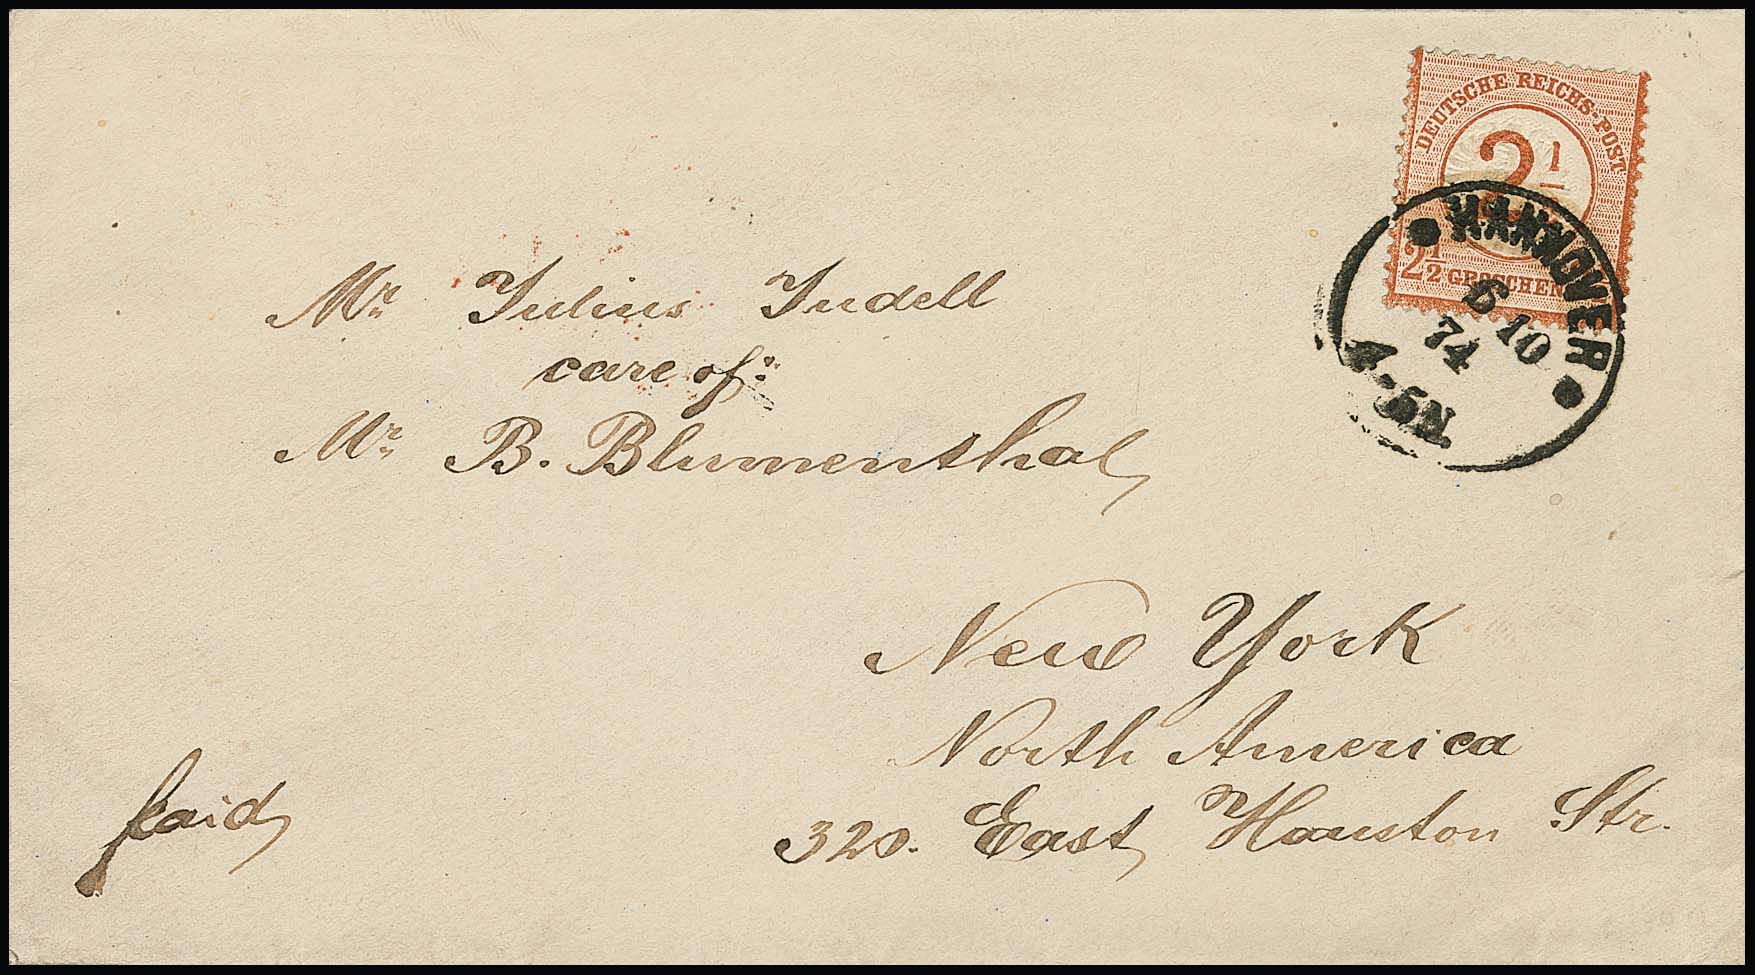 DEUTSCHE REICHS-POST
2 1/2
2 1/2 GROSCHEN
HANNOVER
6 10
74
4-5N.
Mr. Julius Judell
care of:
Mr. B. Blumenthal
New York
North America
320. East Houston Str.
paid